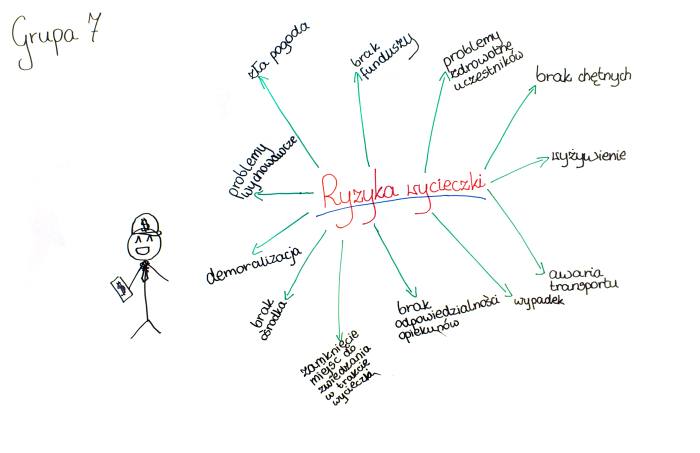 Grupa 7
zła pogoda
brak
funduszy
problemy
zdrowotne
uczestników
brak chętnych
wyżywienie
awaria
transportu
wypadek
brak
odpowiedzialności
opiekunów
zamknięcie
miejsc do
zwiedzania
w trakcie
wycieczki
brak
ośrodka
demoralizacja
problemy
wychowawcze
Ryzyka wycieczki
$
$